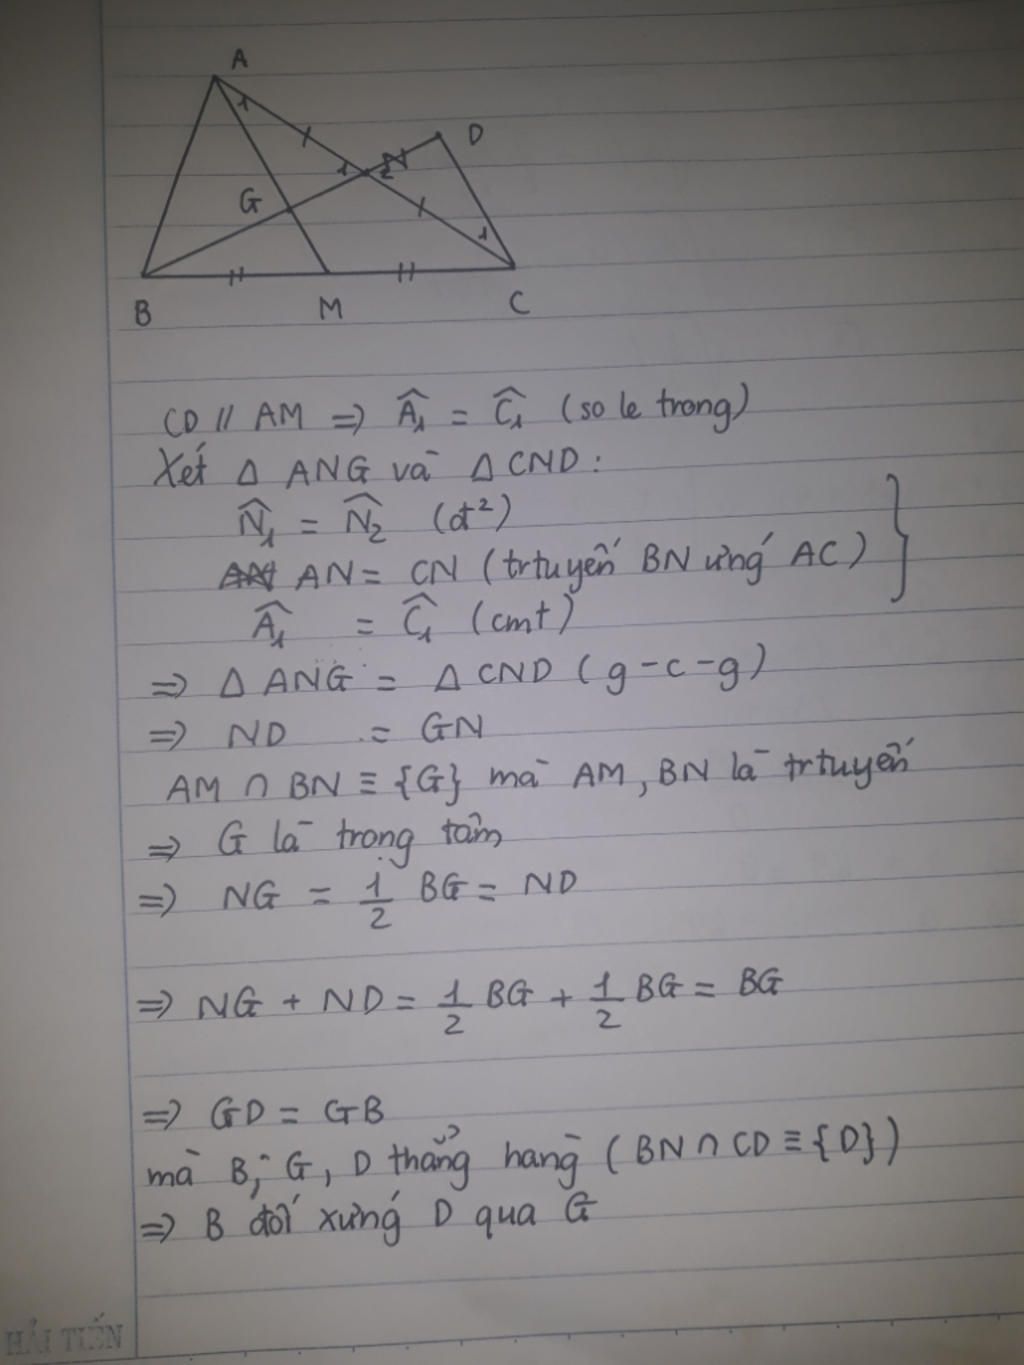 A
1
D
1
N
2
G
1
B
M
C
CD // AM => Â₁ = Ĉ₁ (so le trong)
Xét Δ ANG và Δ CND :
N̂₁ = N̂₂ (đ²)
AN = CN (trtuyến BN ứng AC)
Â₁ = Ĉ₁ (cmt)
=> Δ ANG = Δ CND (g-c-g)
=> ND = GN
AM ∩ BN ≡ {G} mà AM, BN là trtuyến
=> G là trọng tâm
=> NG = 1/2 BG = ND
=> NG + ND = 1/2 BG + 1/2 BG = BG
=> GD = GB
mà B, G, D thẳng hàng (BN ∩ CD ≡ {D})
=> B đối xứng D qua G
HẢI TIẾN